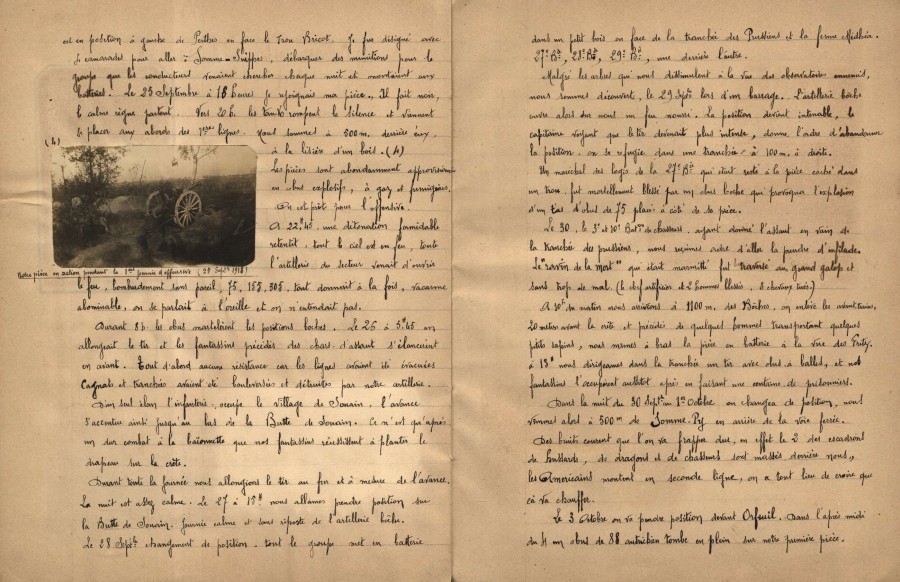 est en position à gauche de Perthes en face le Trou Bricot. Je fus désigné avec
camarades pour aller à Somme-Suippes, débarquer des munitions pour le
groupe que les conducteurs venaient chercher chaque nuit et menaient aux
batteries. Le 25 Septembre à 18 heures je rejoignais ma pièce. Il fait noir,
le calme règne partout. Vers 20 h. les tanks rompent le silence et viennent
se placer aux abords des 1ères lignes. Nous sommes à 500 m. derrière eux
à la lisière d'un bois. (4)
(4)
Les pièces sont abondamment approvisionn
en obus explosifs, à gaz et fumigènes.
On est prêt pour l'offensive.
A 22h45 une détonation formidable
retentit, tout le ciel est en feu, toute
l'artillerie du secteur venait d'ouvrir
Notre pièce en action pendant la 1ère journée d'offensive (26 Septbre 1918)
le feu, bombardement sans pareil, 75, 155, 305, tout donnait à la fois, vacarme
abominable, on se parlait à l'oreille et on n'entendait pas.
Durant 8 h. les obus martelèrent les positions boches. Le 26 à 5h45 on
allongeait le tir et les fantassins précédés des chars d'assaut s'élancèrent
en avant. Tout d'abord aucune résistance car les lignes avaient été évacuées
Cagnats et tranchées avaient été bouleversées et détruites par notre artillerie.
D'un seul élan l'infanterie, occupe le village de Souain, l'avance
s'accentue ainsi jusqu'au bas de la Butte de Souain. Ce n'est qu'après
un dur combat à la baïonnette que nos fantassins réussissent à planter le
drapeau sur la crête.
Durant toute la journée nous allongions le tir au fur et à mesure de l'avance.
La nuit est assez calme. Le 27 à 15h nous allâmes prendre position sur
la Butte de Souain, journée calme et sans riposte de l'artillerie
Le 28 Septbre changement de position. tout le groupe met en batterie
dans un petit bois en face de la tranchée des Prussiens et la ferme Médéah.
27e Bie, 28e Bie, 29e Bie, une derrière l'autre.
Malgré les arbres qui nous dissimulent à la vue des observatoires ennemis,
nous sommes découverts, le 29 Septbre lors d'un barrage. L'artillerie boche
ouvre alors sur nous un feu nourri. La position devient intenable, le
capitaine voyant que le tir devenait plus intense, donne l'ordre d'abandonner
la position. on se réfugie dans une tranchée à 100 m. à droite.
Un maréchal des logis de la 27e Bie qui était resté à la pièce caché dans
un trou, fut mortellement blessé par un obus boche qui provoqua l'explosion
d'un tas d'obus de 75 placé à côté de sa pièce.
Le 30, le 3e et 10e Batons de chasseurs, ayant donné l'assaut en vain de
la tranchée des prussiens, nous reçûmes ordre d'aller la prendre d'enfilade.
Le "ravin de la mort" qui était marmité fut traversé au grand galop et
sans trop de mal. (le chef artificier et 2 hommes blessés, 8 chevaux tués)
A 10h du matin nous arrivons à 1100 m. des Boches, on enlève les avant-trains,
20 mètres avant la crête et précédés de quelques hommes transportant quelques
petits sapins, nous mîmes à bras la pièce en batterie à la vue des Fritz.
à 13h nous dirigeâmes dans la tranchée un tir avec obus à balles, et nos
fantassins l'occupent aussitôt après en faisant une centaine de prisonniers.
Dans la nuit du 30 Septbre au 1er Octobre on changea de position, nous
sommes alors à 500 m de Somme-Py en arrière de la voie ferrée.
Des bruits courent que l'on va frapper dur, en effet le 2 des escadrons
de hussards, de dragons et de chasseurs sont massés derrière nous,
les Américains montent en seconde ligne, on a tout lieu de croire que
çà va chauffer.
Le 3 Octobre on va prendre position devant Orfeuil. Dans l'après midi
du 4 un obus de 88 autrichien tombe en plein sur notre première pièce.